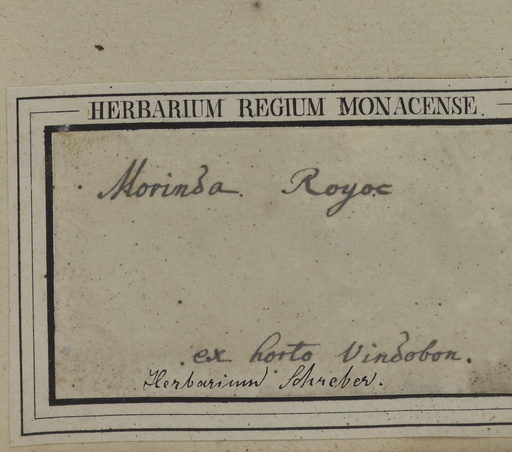 HERBARIUM REGIUM MONACENSE
Morinda. Royoc
ex horto Vindobon.
Herbarium Schreber.